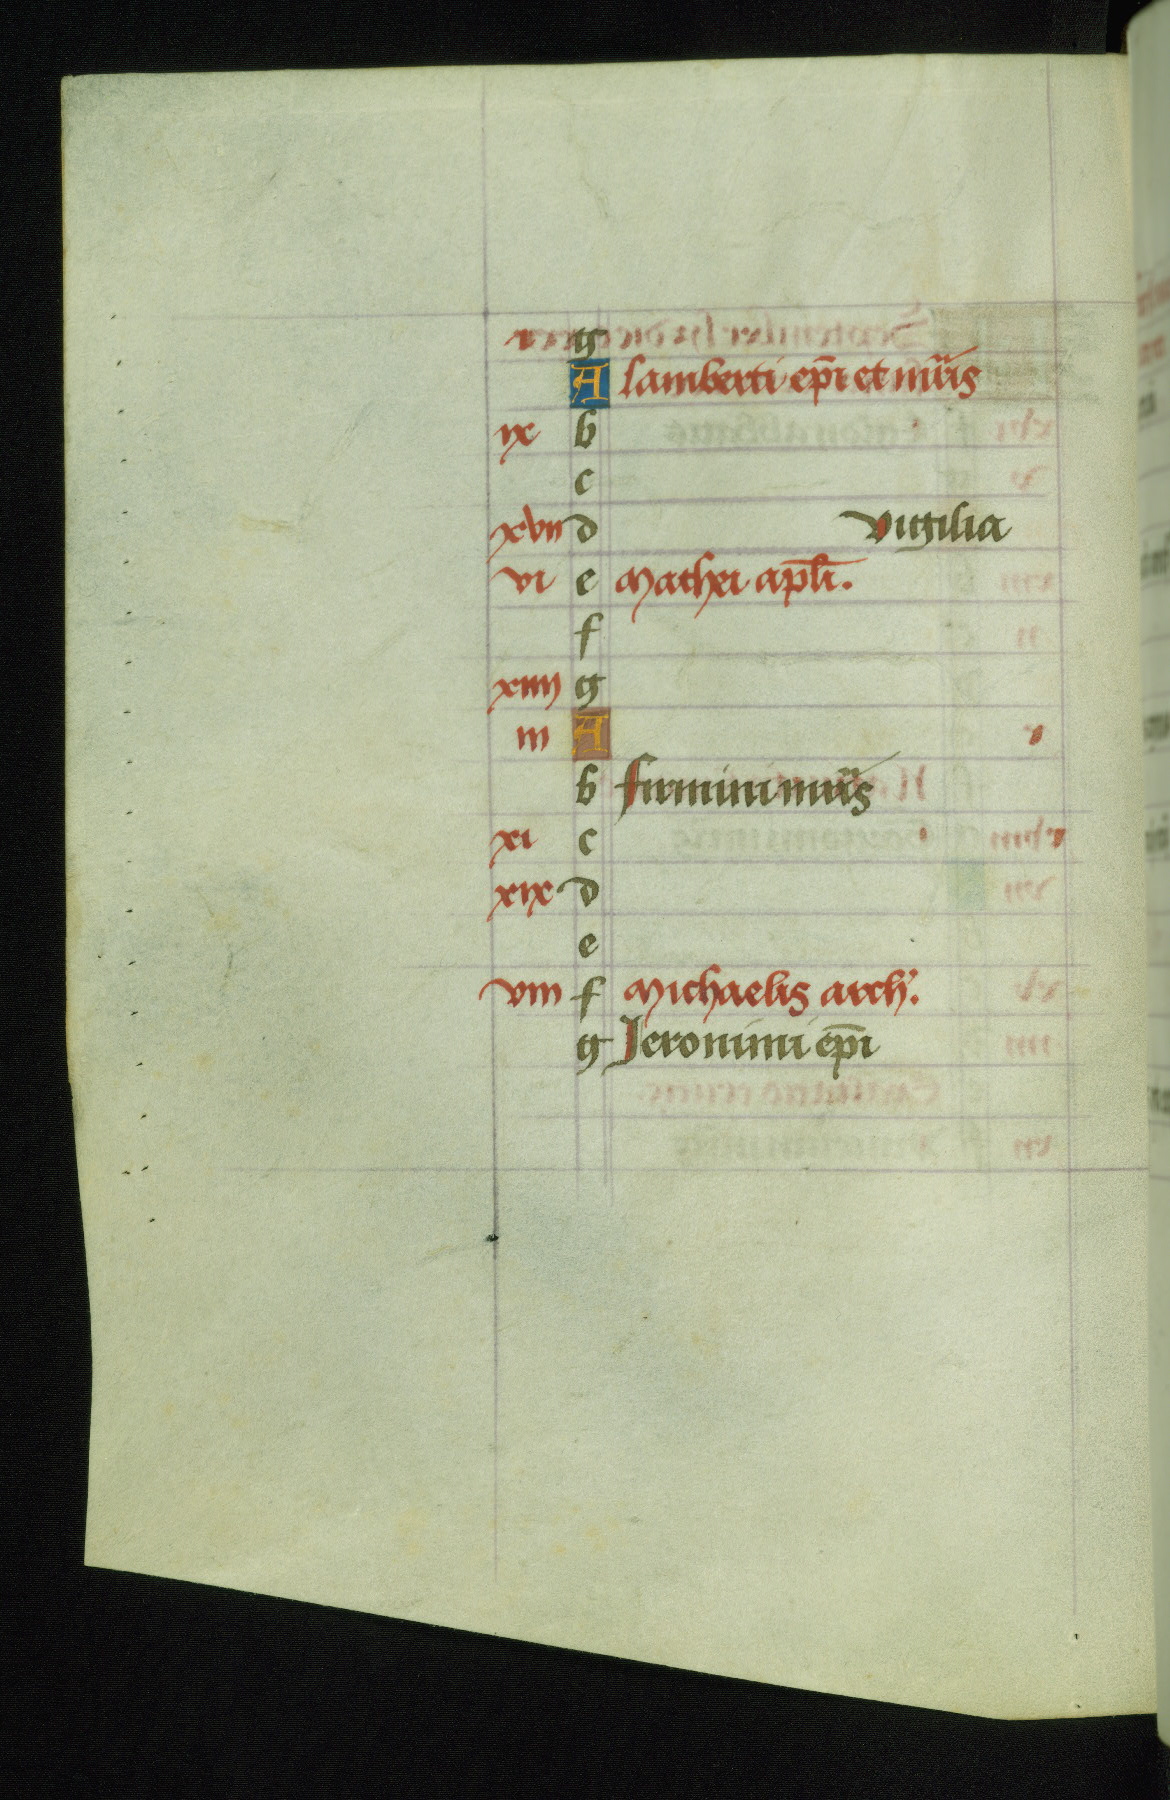 i g
A lamberti ep̄i et mr̄is
ix b
c
xvii d vigilia
vi e Mathei apl̄i.
f
xiiii g
iii A
b firmini mr̄is
xi c
xix d
e
viii f Michaelis arch'.
g Jeronimi ep̄i